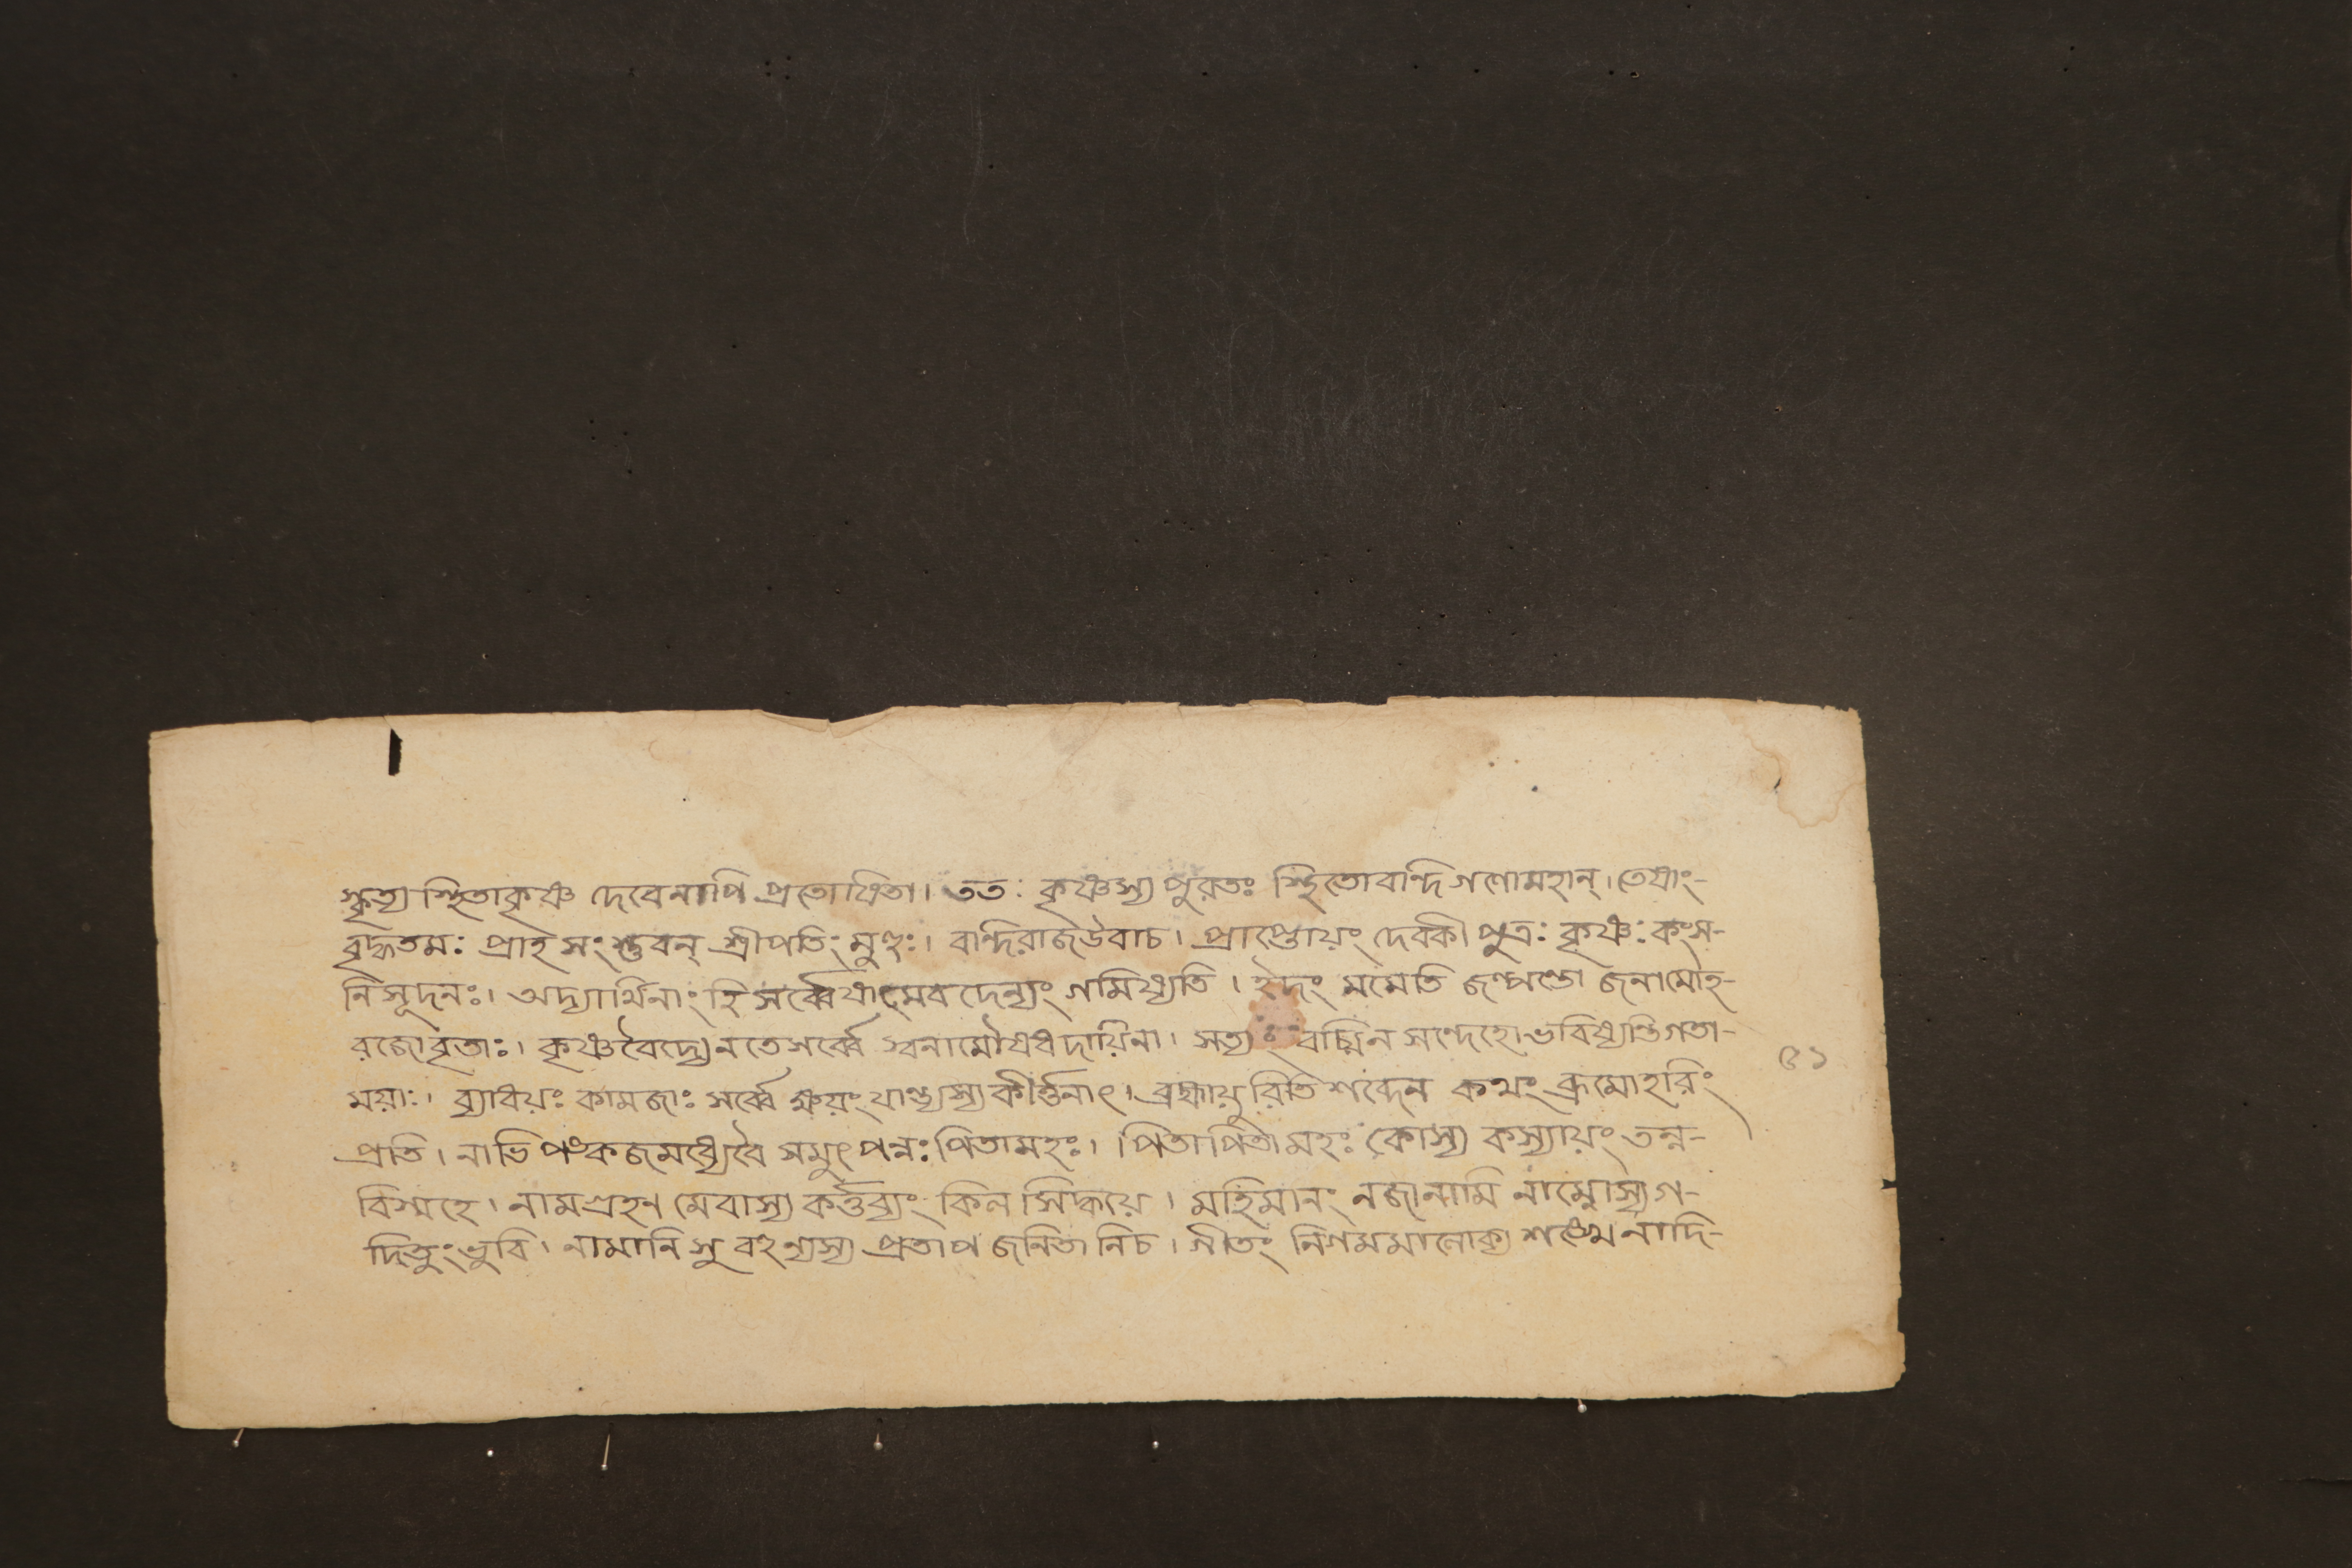 স্কৃত্য স্থিতাকৃষ্ণ দেবেনাপি প্রতোষিতা। ততঃ কৃষ্ণস্য পুরতঃ স্থিতোবান্দি গণোমহান্। তেষাং-
বৃদ্ধতমঃ প্রাহ সংস্তুবন্ শ্রীপতিং মুহুঃ। বান্দিরাজউবাচ। প্রাপ্তোয়ং দেবকী পুত্রঃ কৃষ্ণঃ কংস-
নিসূদনঃ। অদ্যার্থিনাং হি সর্ব্বেষামেব দৈন্যং গমিষ্যতি। ইদং মমেতি জল্পন্তো জনামোহ-
রজোবৃতাঃ। কৃষ্ণবৈদ্যেনতেসর্ব্বে স্বনামৌষধদায়িনা। সত্যং বচ্মিন সন্দেহো ভবিষ্যন্তিগতা-
ময়াঃ। ব্যাধয়ঃ কামজাঃ সর্ব্বে ক্ষয়ং যান্ত্যস্য কীর্ত্তনাৎ। ব্রহ্মায়ুরিতি শব্দেন কথং ব্রূমোহরিং
প্রতি। নাভি পঙ্কজমধ্যেবৈ সমুৎপন্নঃ পিতামহঃ। পিতাপিতামহঃ কোস্য কস্যায়ং তন্ন-
বিদ্মহে। নামগ্রহণ মেবাস্য কর্ত্তব্যং কিল সিদ্ধয়ে। মহিমানং নজানামি নাম্নোস্যগ-
দিতুং ভুবি। নামানি সু বহূন্যস্য প্রতাপ জনিতা নিচ। গীতং নিগমমালোক্য শঙ্খেনাদি-
৫১